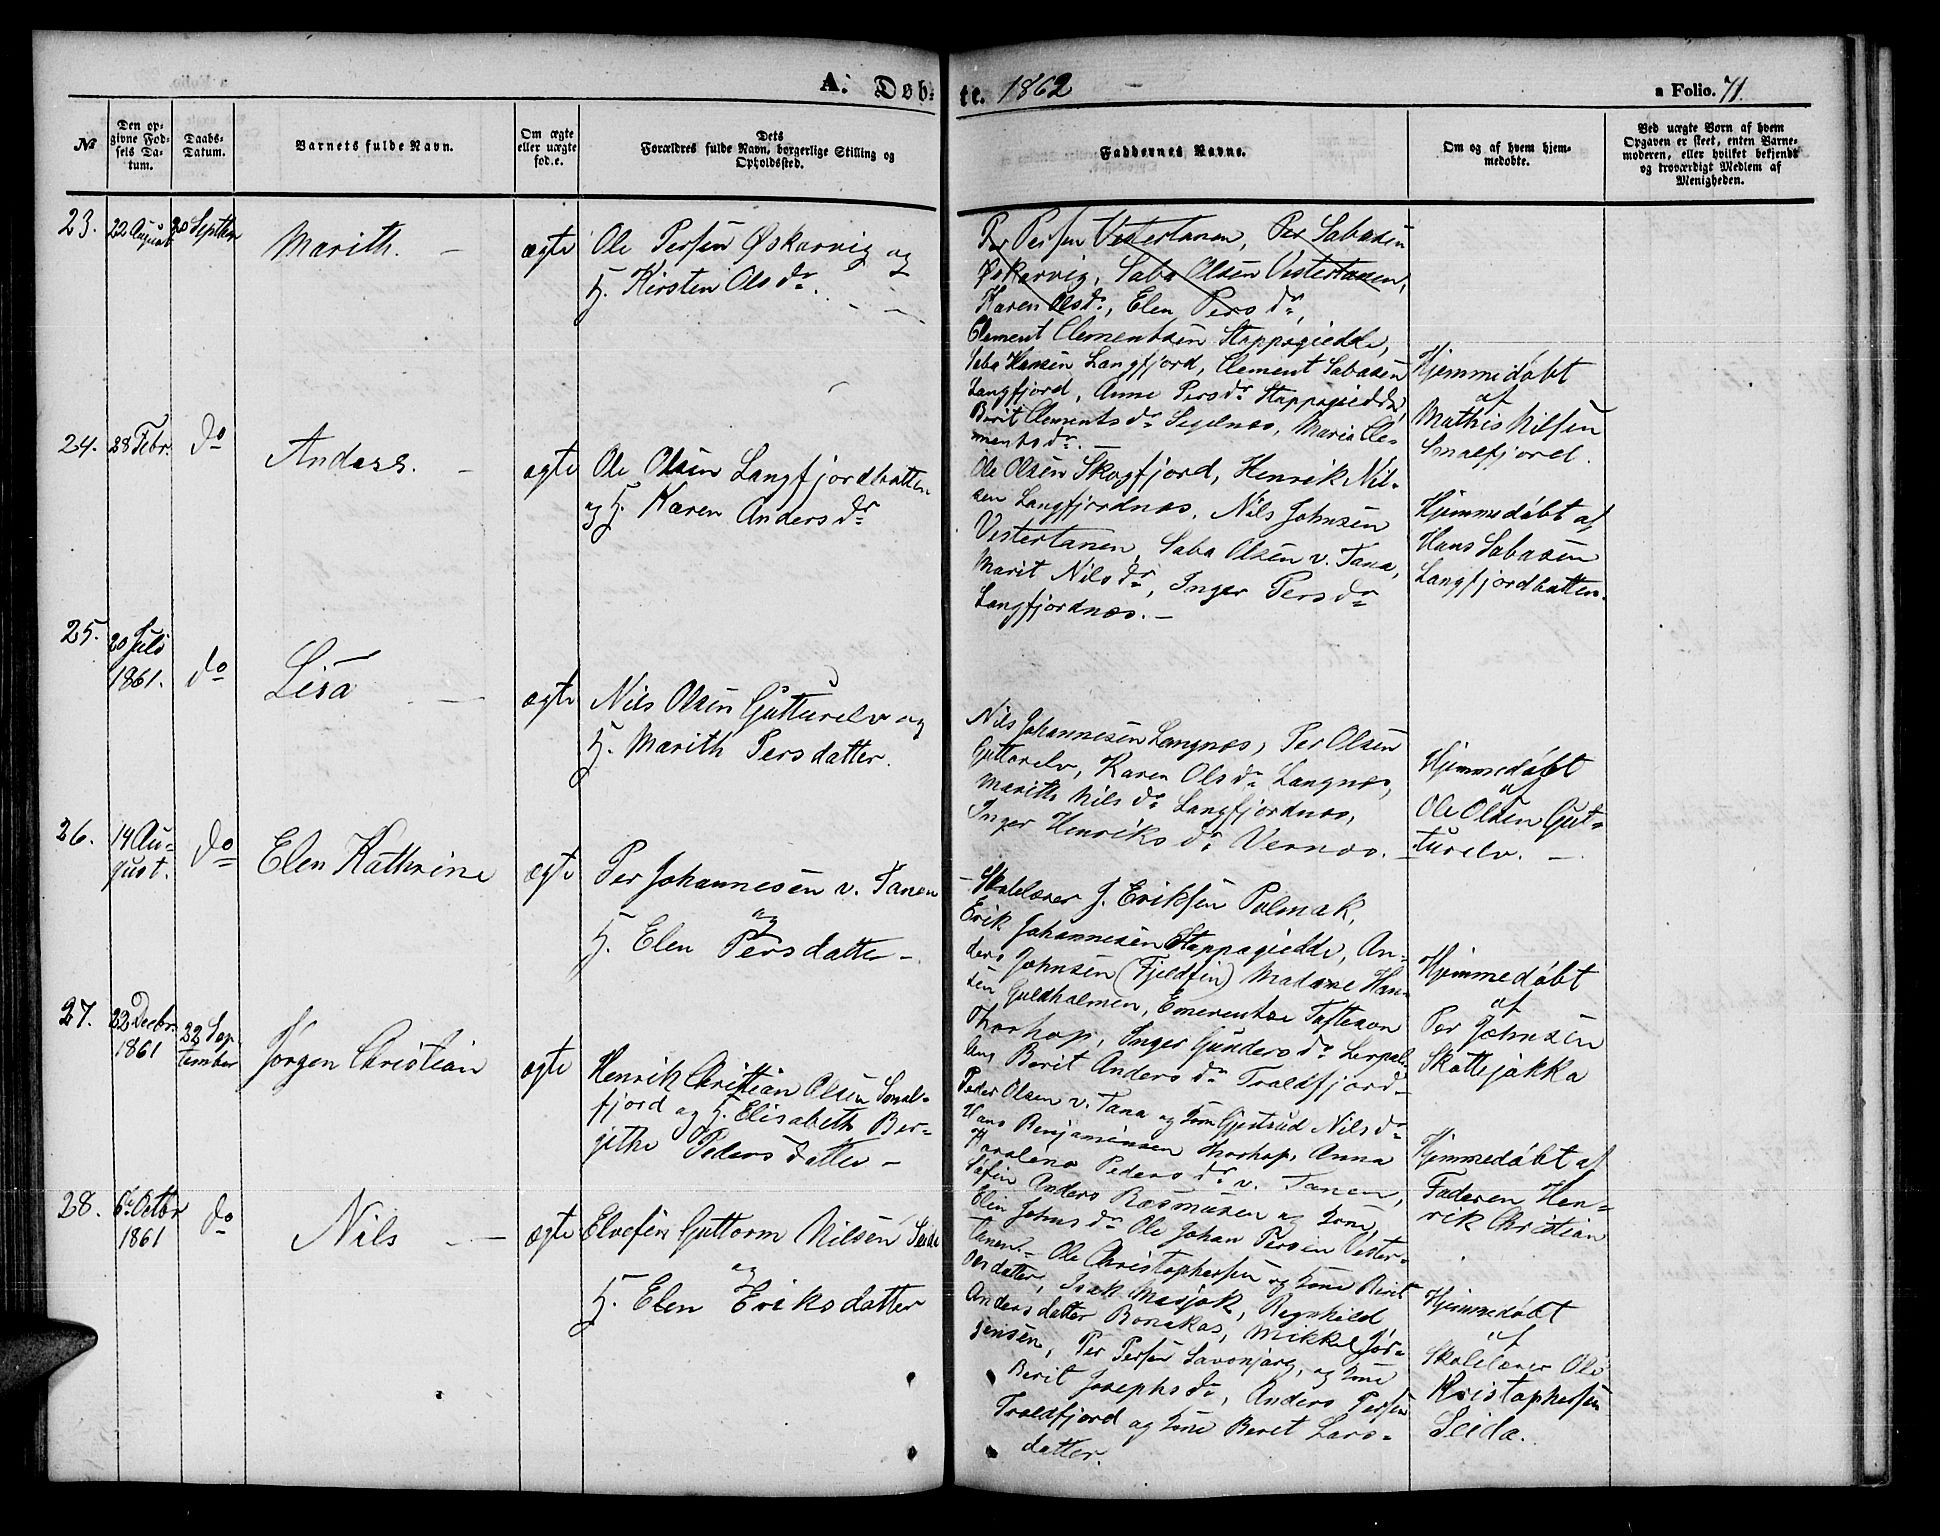 A. Døb-
te. 1862
a Folio. 71.
№
Den op-
givne Fød-
sels Da-
tum.
Daabs-
Datum.
Barnets fulde Navn.
Om ægte
eller uægte
fød.e.
Dets
Forældres fulde Navn, borgerlige Stilling og
Opholdssted.
Faddernes Navne.
Om og af hvem hjem-
medøbte.
Ved uægte Børn af hvem
Opgaven er skeet, enten Barne-
moderen, eller hvilket bekjendt
og troværdigt Medlem af
Menigheden.
23.
22 August
20 Septber
Marith. -
ægte
Ole Persen Øskarvig og
H. Kirsten Olsdr.
Per Persen Vestertanen, Per Sabasen
Øskarvig, Saba Olsen Vestertanen,
Karen Olsdr, Elen Persdr,
Clement Clementsen Stappogiedde,
Saba Hansen Langfjord, Clement Sabasen
Langfjord, Anne Persdr Stappogiedde,
Berit Clementsdr Segelnæs, Maria Cle-
mentsdr. -
Hjemmedøbt
af
Mathis Nilsen
Smalfjord.
24.
28 Febr.
do
Anders. -
ægte
Ole Olsen Langfjordbotten
og H. Karen Andersdr
Ole Olsen Skogfjord, Henrik Nil-
sen Langfjordnæs, Nils Johnsen
Vestertanen, Saba Olsen v. Tana,
Marit Nilsdr, Inger Persdr
Langfjordnæs. -
Hjemmedøbt af
Hans Sabasen
Langfjordbotten.
25.
20 Juli
1861.
do
Lisa -
ægte
Nils Olsen Gutturelv og
H. Marith Persdatter.
Nils Johannesen Langnæs, Per Olsen
Guttorelv, Karen Olsdr Langnæs,
Marith Nilsdr Langfjordnæs,
Inger Henriksdr Vernæs. -
Hjemmedøbt
af
Ole Olsen Gut-
turelv. -
26.
14 Au-
gust.
do
Elen Kathrine
ægte
Per Johannesen v. Tanen
og
H. Elen Persdatter -
- Skolelærer J. Eriksen Polmak,
Erik Johannesen Stappogiedde, An-
ders Johnsen (Fjeldfin) Madame Han-
sen Guldholmen, Emerentse Tofteson
Thorhop, Inger Gundersdr Lerpol-
len, Berit Andersdr Troldfjord -
Hjemmedøbt
af
Per Johnsen
Skottejokka
27.
22 Decbr.
1861
22 Sep-
tember
Jørgen Christian
ægte
Henrik Christian Olsen Smal-
fjord og H. Elisabeth Ber-
jithe Pedersdatter -
Peder Olsen v. Tana og Kone Gjertrud Nilsdr
Hans Benjaminsen Thorhop, Anna
Karolina Pedersdr v. Tanen,
Søfin Anders Rasmusen og Kone
Elin Johnsdr Ole Johan Persen Vester-
tanen. -
Hjemmedøbt af
Faderen Hen-
rik Christian
28.
6te Octbr
1861
do
Nils -
ægte
Elvefin Guttorm Nilsen Seida
og
H. Elen Eriksdatter
Ole Christophersen og Kone Berit
Persdatter, Isak Masjok, Ragnhild
Andersdatter Bonakas, Mikkel Jør-
gensen, Per Persen Savonjarg, og Kone
Berit Josephsdr, Anders Persen
Troldfjord og Kone Beret Lars-
datter.
Hjemmedøbt
af
Skolelærer Ole
Kristophersen
Seida.